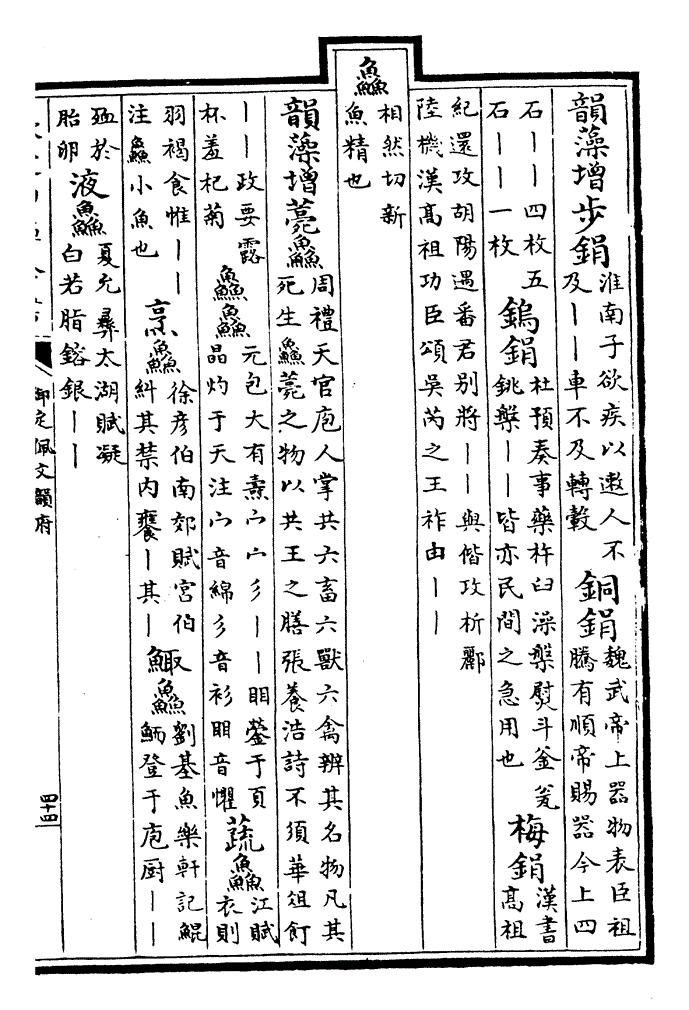 韻藻增步鋗淮南子欲疾以遫人不及丨丨車不及轉轂銅鋗魏武帝上器物表臣祖騰有順帝賜器今上四
石丨丨四枚五石丨丨一枚鎢鋗杜預奏事藥杵臼澡槃熨斗釜瓮銚槃丨丨皆亦民間之急用也梅鋗漢書髙祖
紀還攻胡陽遇番君别將丨丨與偕攻析酈陸機漢髙祖功臣頌吳芮之王祚由丨丨
鱻相然切新魚精也
韻藻增薧鱻周禮天官庖人掌共六畜六獸六禽辨其名物凡其死生鱻薧之物以共王之膳張養浩詩不須華俎飣
丨丨政要露杯羞杞菊鱻鱻元包大有宀宀彡丨丨䀠于頁晶灼于天注宀音綿彡音衫䀠音懼蔬鱻江賦衣則
羽褐食惟丨丨注鱻小魚也烹鱻徐彦伯南郊賦宮伯糾其禁内饔丨其丨鯫鱻劉基魚樂軒記鯤鮞登于庖厨丨丨
殈於胎卵液鱻夏允彝太湖賦凝白若脂鎔銀丨丨
御定佩文韻府
四十四